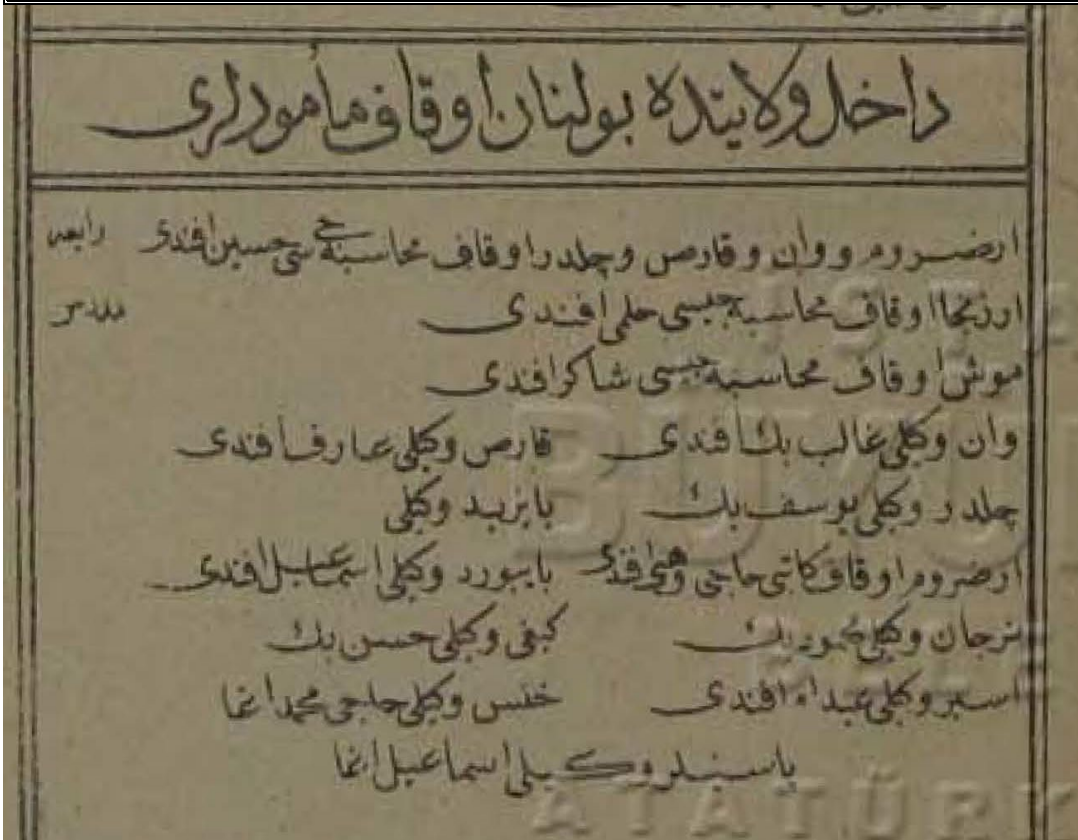 داخل ولایتده بولنان اوقاف مأمورلری
ارضــروم و وان و قارص و چلدر اوقاف محاسبه جی سی حسین افندی رابعه
ارزنجان اوقاف محاسبه جیسی حلمی افندی
موش اوقاف محاسبه جیسی شاکر افندی
وان وکیلی غالب بك افندی قارص وکیلی عارف افندی
چلدر وکیلی یوسف بك بایزید وکیلی
ارضروم اوقاف کاتبی حاجی وهبی افندی بایبورد وکیلی اسماعیل افندی
ترجان وکیلی محمود بك کیغی وکیلی حسن بك
اسپر وکیلی عبدالله افندی خنس وکیلی حاجی محمد اغا
پاسینلر وکیلی اسماعیل اغا
ATATÜRK